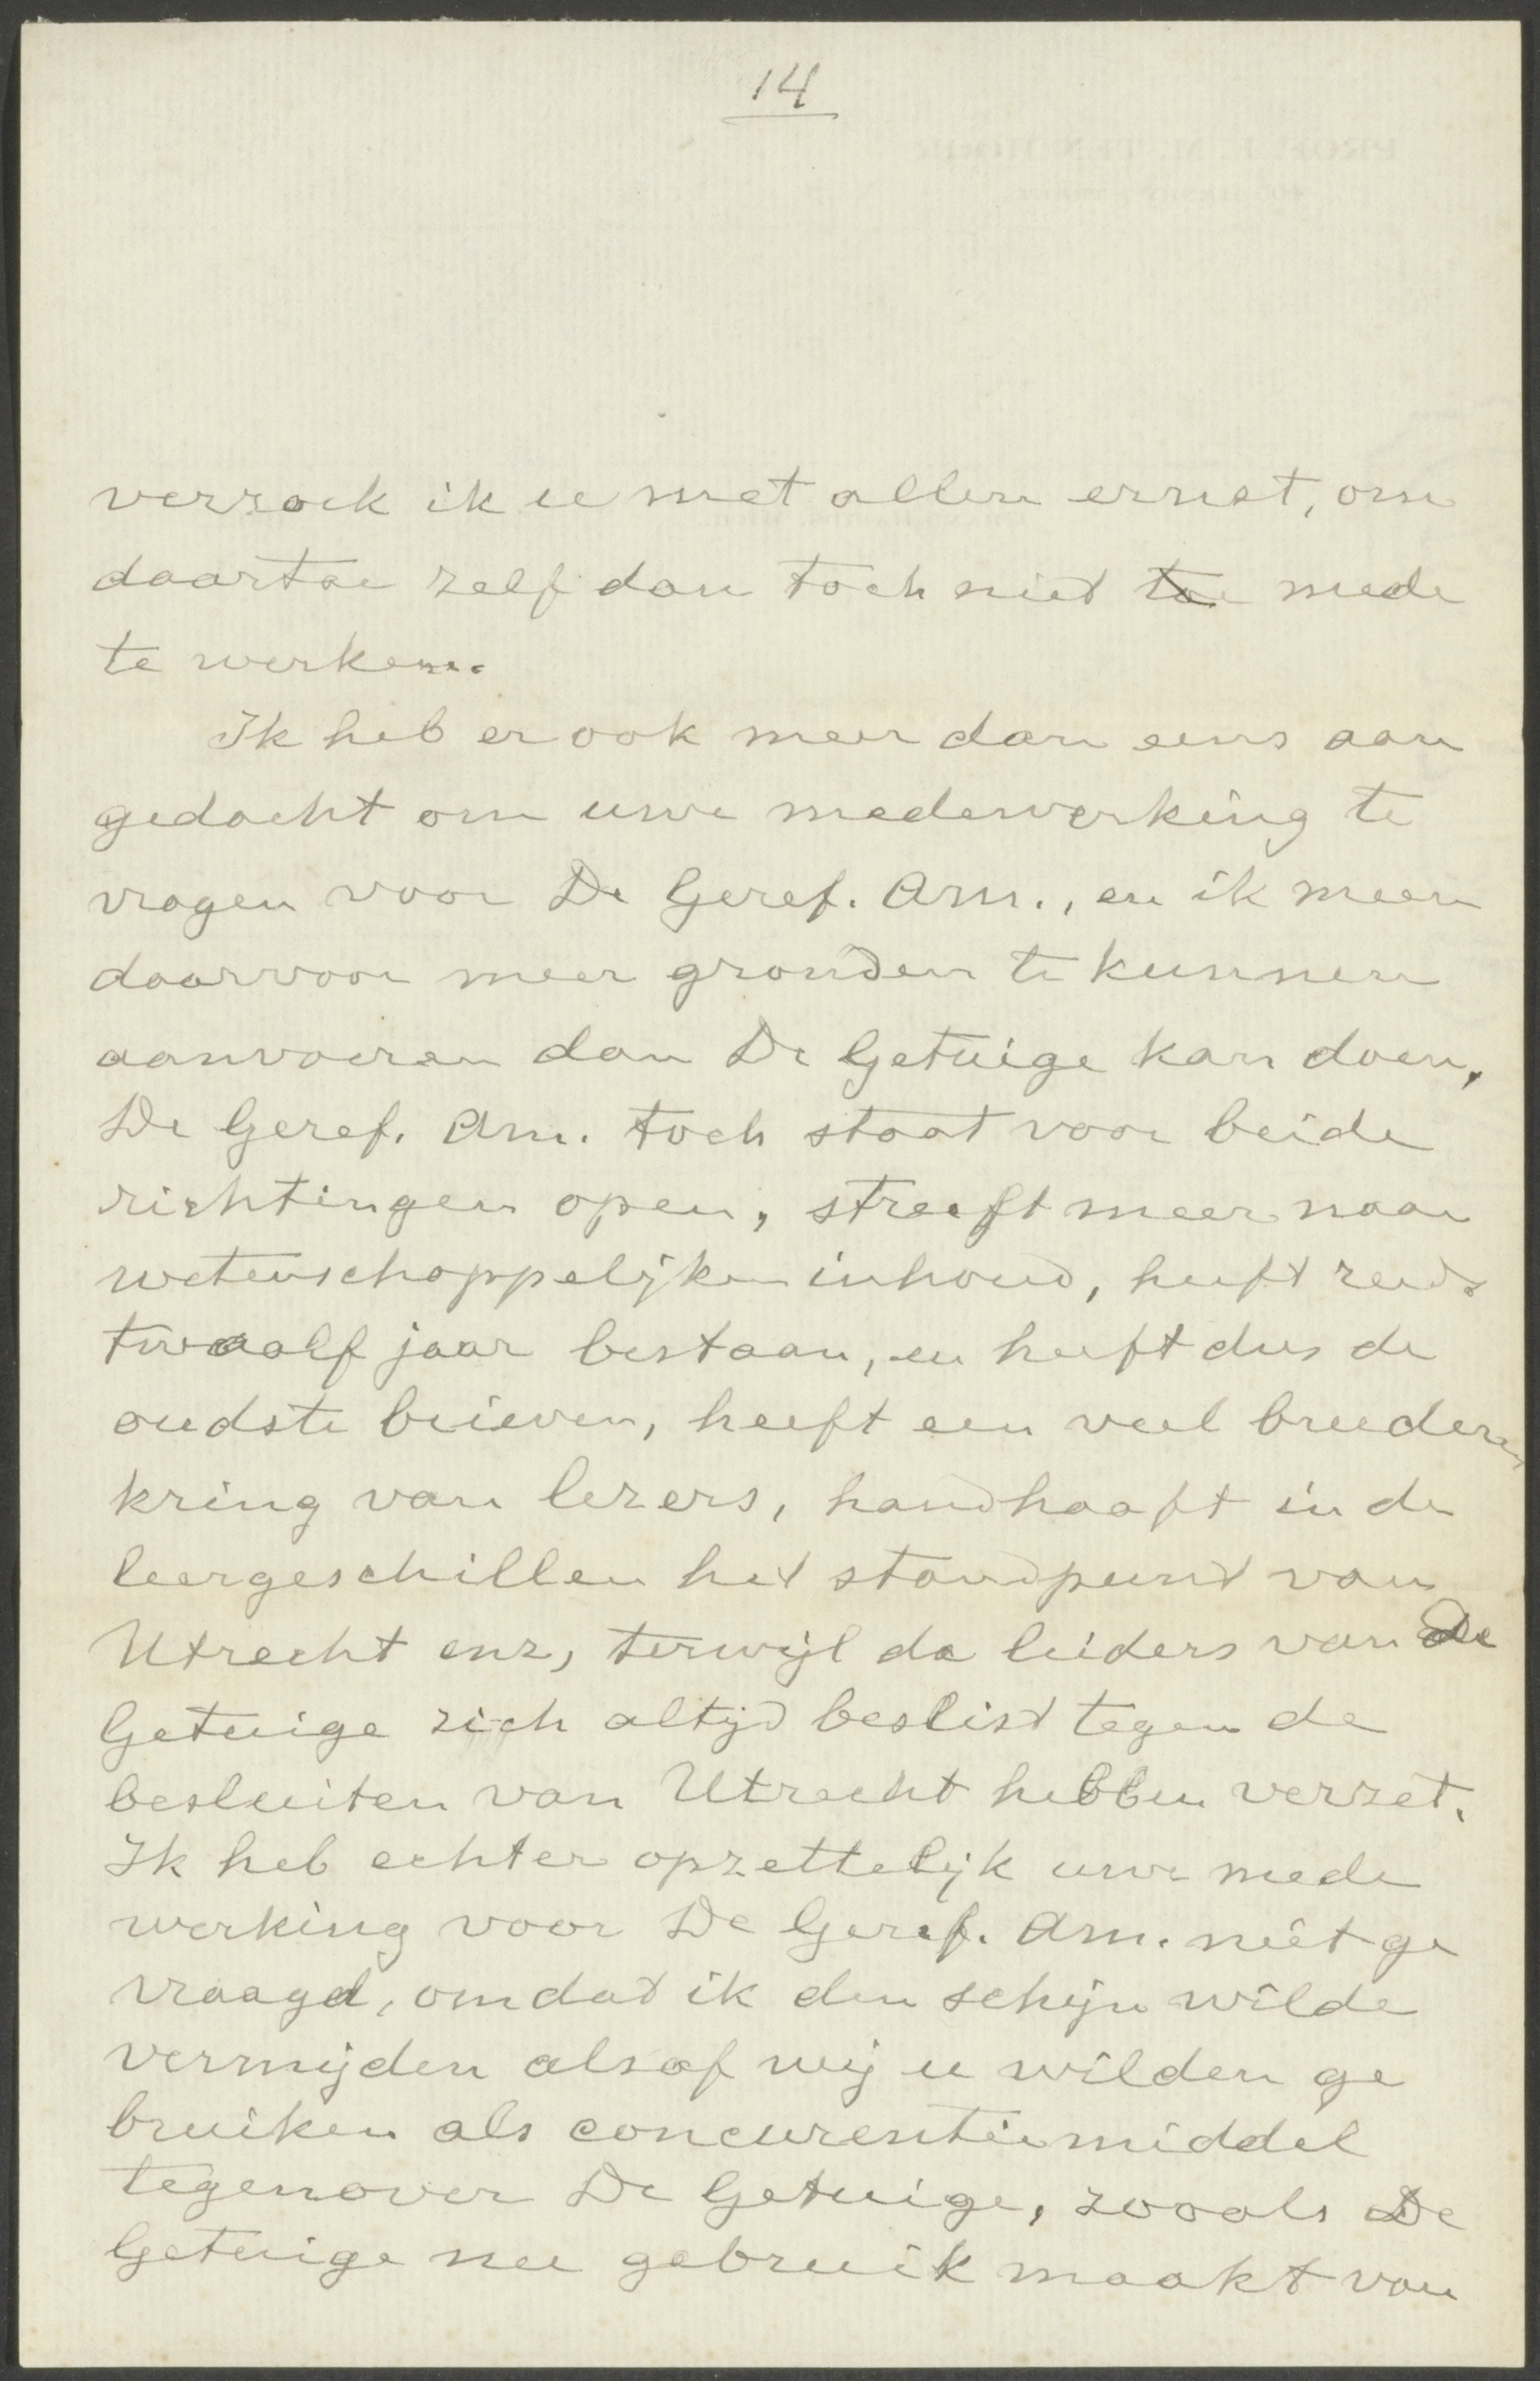 14
verzoek ik u met allen ernst, om
daartoe zelf dan toch niet toe mede
te werken.
Ik heb er ook meer dan eens aan
gedacht om uwe medewerking te
vragen voor De Geref. Am., en ik meen
daarvoor meer gronden te kunnen
aanvoeren dan De Getuige kan doen,
De Geref. Am. toch staat voor beide
richtingen open, streeft meer naar
wetenschappelijken inhoud, heeft reeds
twaalf jaar bestaan, en heeft dus de
oudste brieven, heeft een veel breederen
kring van lezers, handhaaft in de
leergeschillen het standpunt van
Utrecht enz, terwijl de leiders van De
Getuige zich altijd beslist tegen de
besluiten van Utrecht hebben verzet.
Ik heb echter opzettelijk uwe mede
werking voor De Geref. Am. niet ge
vraagd, omdat ik den schijn wilde
vermijden alsof wij u wilden ge
bruiken als concurentiemiddel
tegenover De Getuige, zooals De
Getuige nu gebruik maakt van